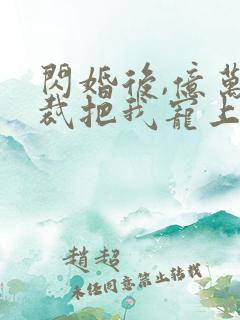 閃婚後,億萬
裁把我寵上
趙超
未經同意禁止轉載